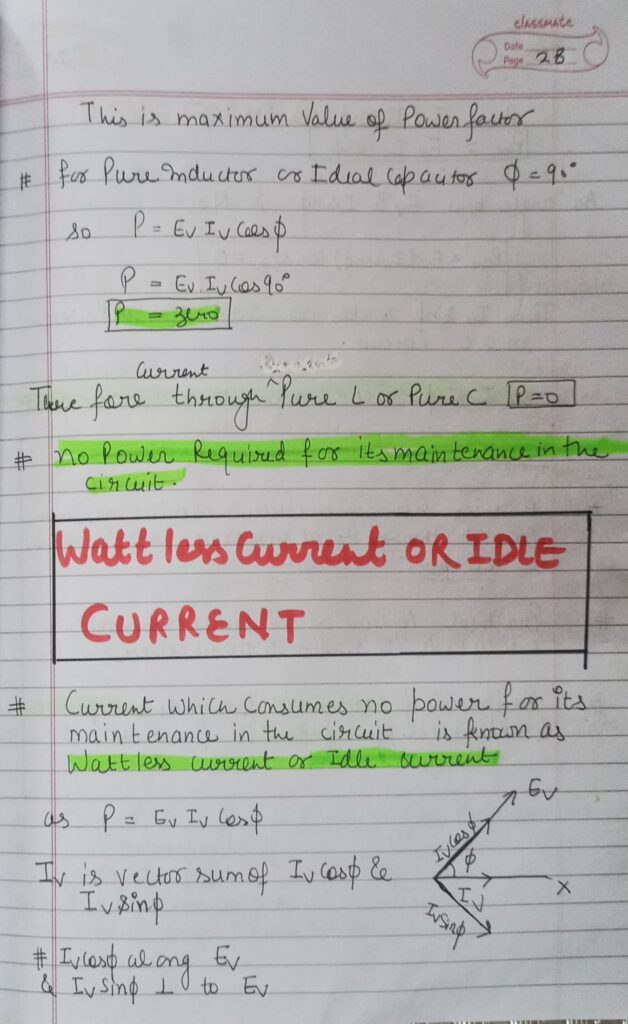 classmate
Date
Page 28
This is maximum Value of Power factor
# for Pure Inductor or Ideal Capacitor ϕ = 90°
so P = Ev Iv Cosϕ
P = Ev. Iv Cos 90°
P = zero
Current
There fore through ^ Pure L or Pure C P=0
# no Power Required for its maintenance in the
circuit.
Wattless Current OR IDLE
CURRENT
# Current which Consumes no power for its
maintenance in the circuit is known as
Wattless current or Idle current
as P = Ev Iv Cosϕ
Iv is vector sum of Iv Cosϕ &
Iv Sinϕ
# Iv Cosϕ along Ev
& Iv Sinϕ ⊥ to Ev
Ev
Iv cosϕ
ϕ
Iv
X
Iv Sinϕ